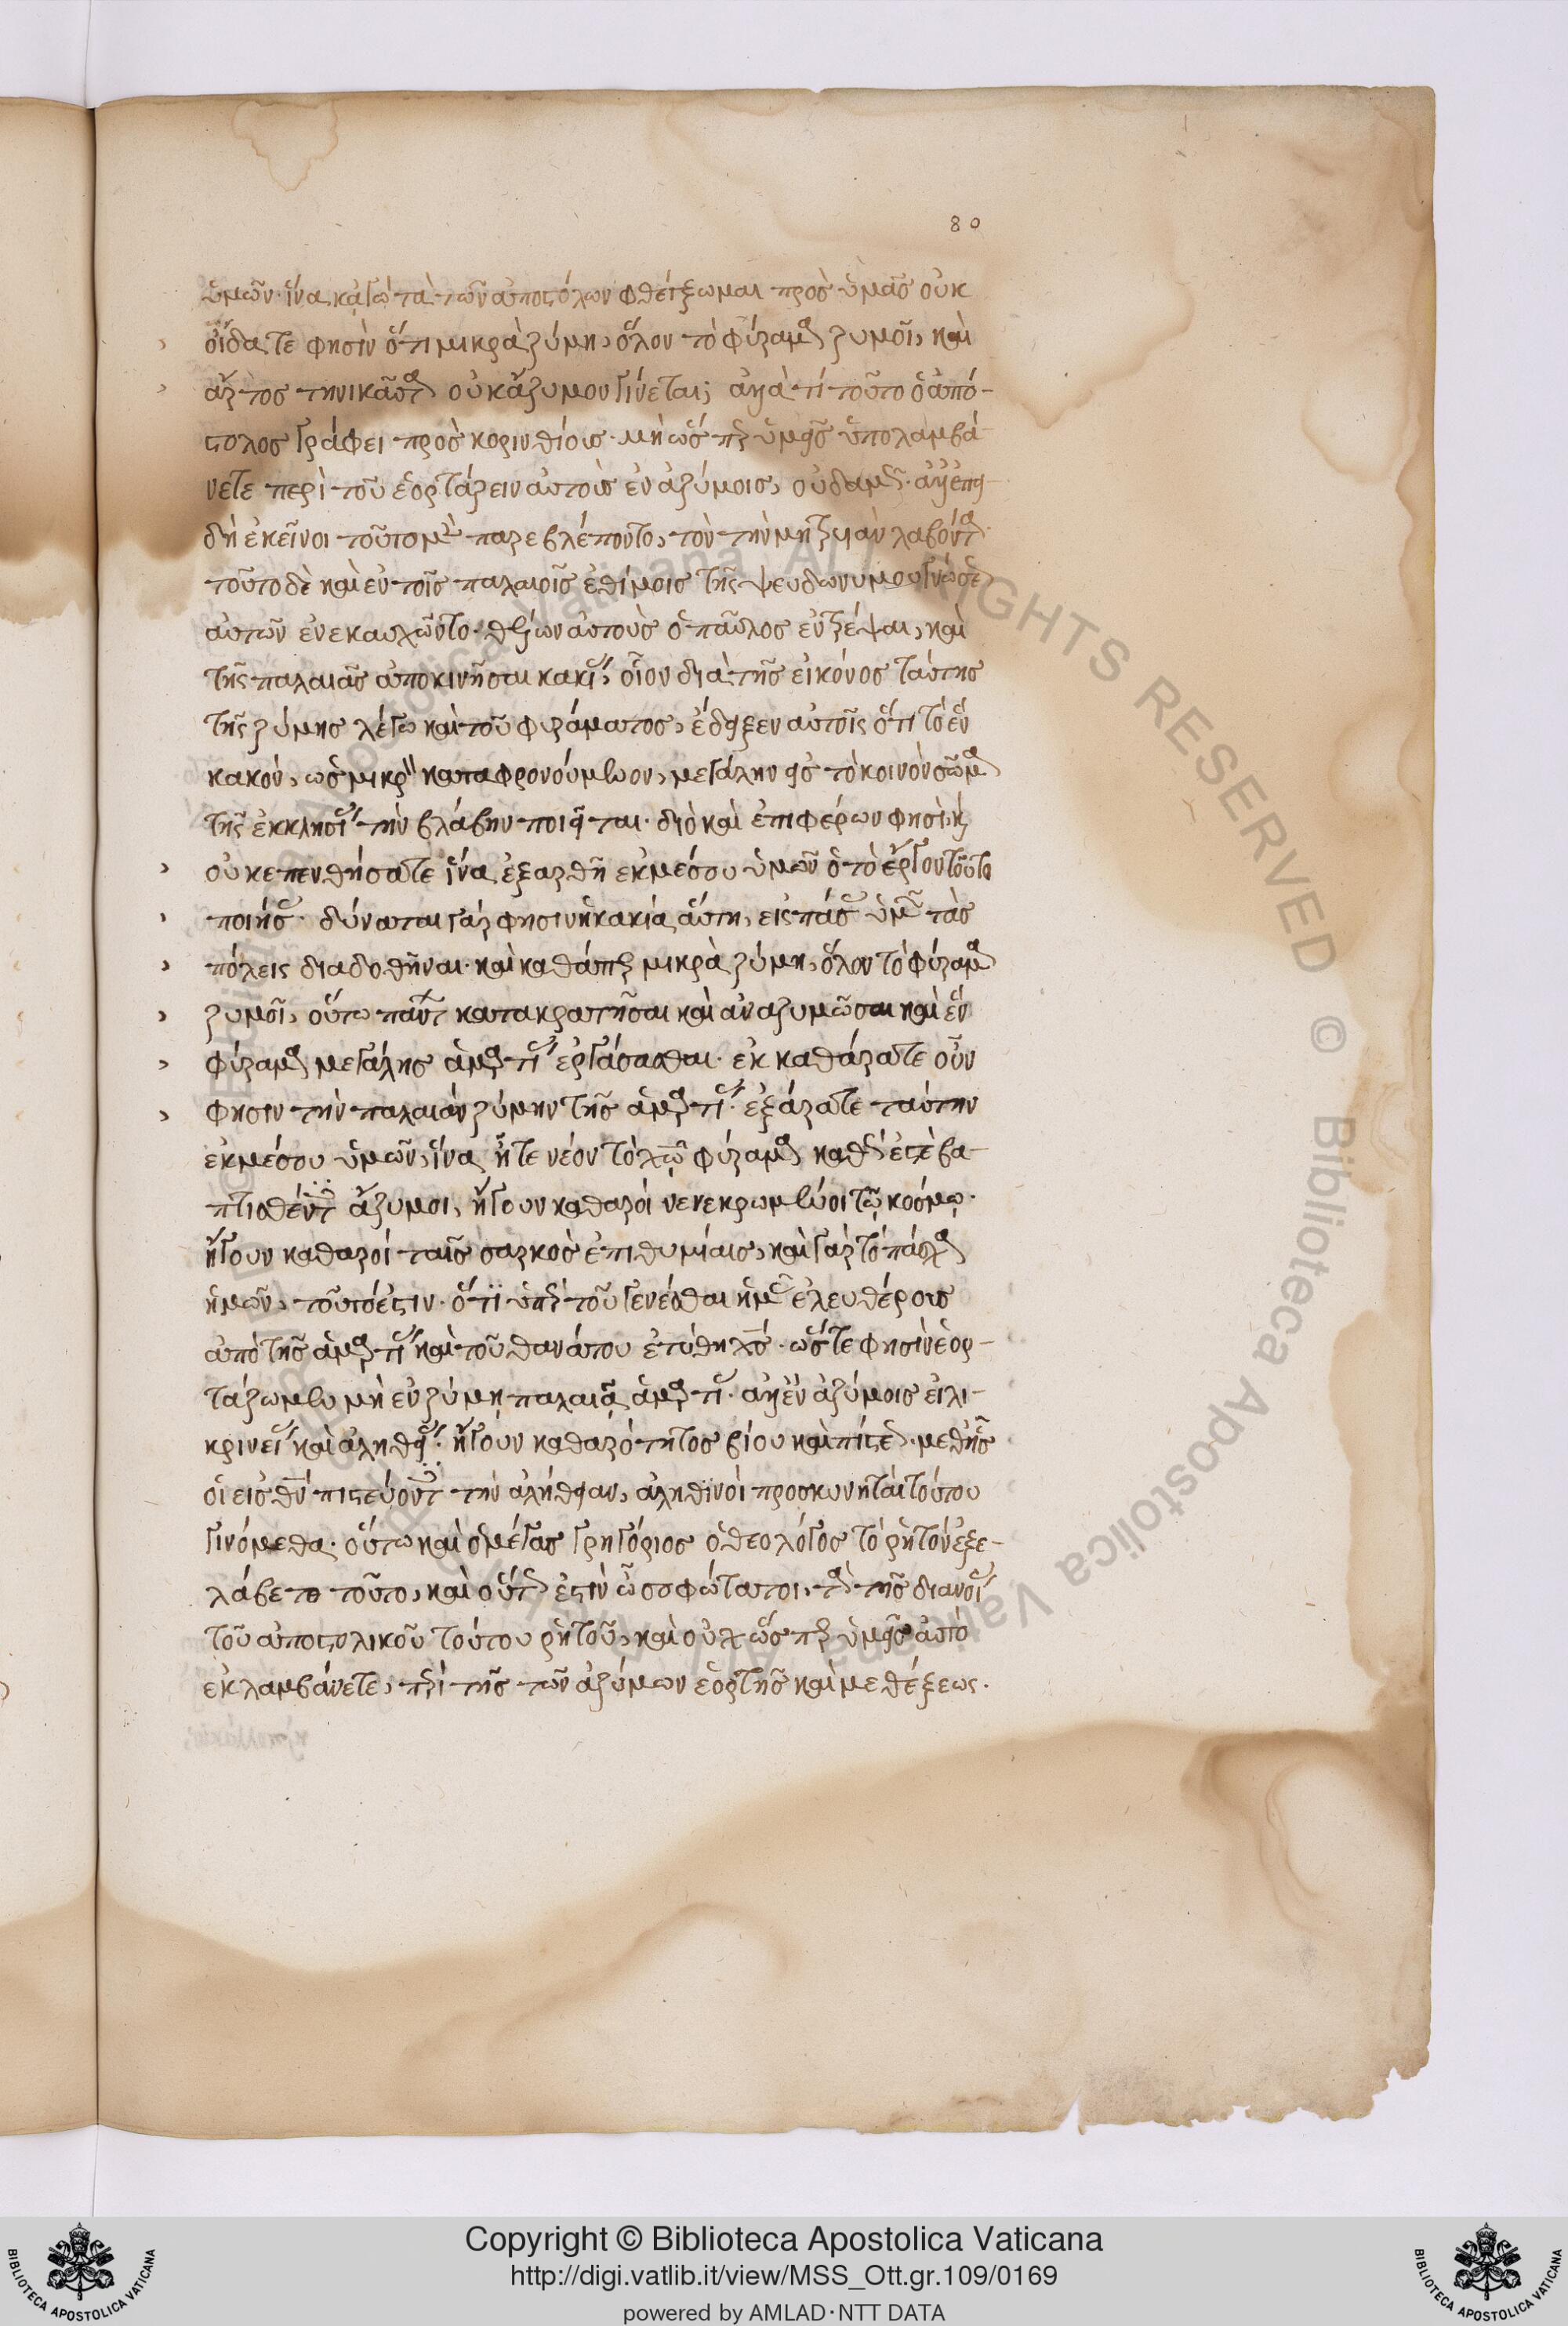 80
ὑμῶν· ἵνα κἀγὼ τὰ τῶν ἀποστόλων φθέγξωμαι πρὸς ὑμᾶς οὐκ
οἴδατε φησὶν ὅτι μικρὰ ζύμη, ὅλον τὸ φύραμα ζυμοῖ, καὶ
ἄρτος τηνικαῦτα οὐκ ἄζυμον γίνεται; ἀλλὰ τί τοῦτο ὁ ἀπό-
στολος γράφει πρὸς κορινθίους· μὴ ὥσπερ ὑμεῖς ὑπολαμβά-
νετε περὶ τοῦ ἑορτάζειν αὐτοὺς ἐν ἀζύμοις, οὐδαμῶς· ἀλλ' ἐπει-
δὴ ἐκεῖνοι τοῦτο μὲν παρεβλέποντο, τὸν τὴν μητρυιὰν λαβόντα
τοῦτο δὲ καὶ ἐν τοῖς παλαιοῖς ἐθίμοις τῆς ψευδωνυμου γνώσεως
αὐτῶν ἐνεκαυχῶντο· θέλων αὐτοὺς ὁ παῦλος ἐντρέψαι, καὶ
τῆς παλαιᾶς ἀποκινῆσαι κακίας, οἷον διὰ τῆς εἰκόνος ταύτης
τῆς ζύμης λέγω καὶ τοῦ φυράματος, ἔδειξεν αὐτοῖς ὅτι τὸ ἓν
κακὸν, ὡς μικρὸν καταφρονούμενον, μεγάλην εἰς τὸ κοινὸν σῶμα
τῆς ἐκκλησίας τὴν βλάβην ποιεῖται· διὸ καὶ ἐπιφέρων φησὶ, καὶ
οὐκ ἐπενθήσατε ἵνα ἐξαρθῆ ἐκ μέσου ὑμῶν ὁ τὸ ἔργον τοῦτο
ποιήσας· δύναται γάρ φησιν ἡ κακία αὕτη, εἰς πάσας ὑμῶν τὰς
πόλεις διαδοθῆναι· καὶ καθάπερ μικρὰ ζύμη, ὅλον τὸ φύραμα
ζυμοῖ, οὕτω πάντων κατακρατῆσαι καὶ ἀναζυμῶσαι καὶ ἓν
φύραμα μεγάλης ἁμαρτίας ἐργάσασθαι· ἐκκαθάρατε οὖν
φησιν τὴν παλαιὰν ζύμην τῆς ἁμαρτίας· ἐξάρατε ταύτην
ἐκ μέσου ὑμῶν, ἵνα ἦτε νέον τῷ χῷ φύραμα καθώς ἐστὲ βα-
πτισθέντες ἄζυμοι, ἤγουν καθαροὶ νενεκρωμένοι τῷ κόσμῳ·
ἤγουν καθαροὶ ταῖς σαρκὸς ἐπιθυμίαις, καὶ γὰρ τὸ πάσχα
ἡμῶν, τουτέστιν· ὅτι ὑπὲρ τοῦ γενέσθαι ἡμᾶς ἐλευθέρους
ἀπὸ τῆς ἁμαρτίας καὶ τοῦ θανάτου ἐτύθη χς· ὥστε φησὶν ἑορ-
τάζωμεν μὴ ἐν ζύμῃ παλαιᾷ ἁμαρτίας· ἀλλ' ἐν ἀζύμοις εἰλι-
κρινείας καὶ ἀληθείας· ἤγουν καθαρότητος βίου καὶ πίστεως· μεθ' ἧς
οἱ εἰς θν πιστεύοντες τὴν ἀλήθειαν, ἀληθινοὶ προσκυνηταὶ τούτου
γινόμεθα· οὕτω καὶ ὁ μέγας γρηγόριος ὁ θεολόγος τὸ ῥητὸν ἐξε-
λάβετο τοῦτο, καὶ οὕτως ἐστὶν ὦ σοφώτατοι, τὰ τῆς διανοίας
τοῦ ἀποστολικοῦ τούτου ῥητοῦ, καὶ οὐχ ὥσπερ ὑμεῖς αὐτὸ
ἐκλαμβάνετε, περὶ τῆς τῶν ἀζύμων ἑορτῆς καὶ μεθέξεως.
Copyright © Biblioteca Apostolica Vaticana
http://digi.vatlib.it/view/MSS_Ott.gr.109/0169
powered by AMLAD·NTT DATA